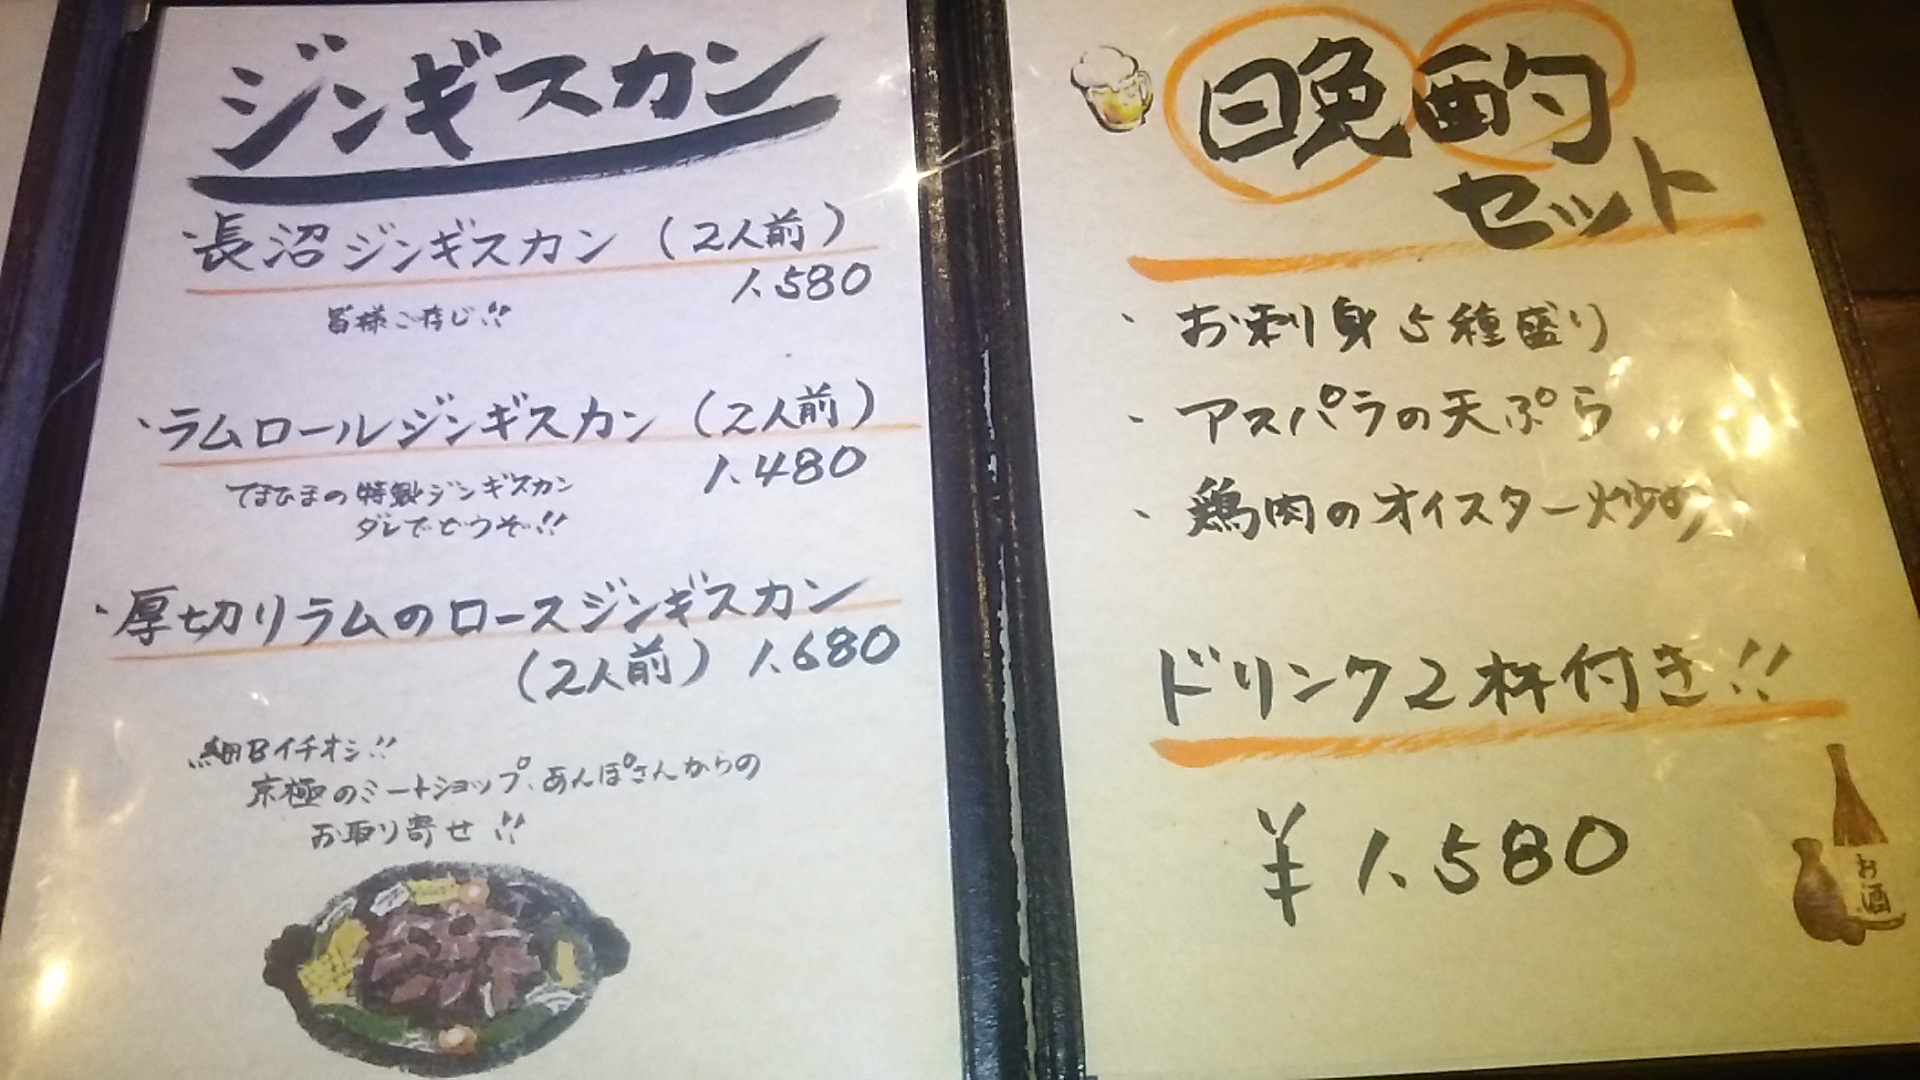 ジンギスカン
・長沼ジンギスカン(2人前)
1.580
皆様ご存じ!!
・ラムロールジンギスカン(2人前)
1.480
てまひまの特製ジンギスカン
ダレでどうぞ!!
・厚切りラムのロースジンギスカン
(2人前) 1.680
イチオシ!!
京極のミートショップ、あんぽさんからの
お取り寄せ!!
晩酌
セット
・お刺身5種盛り
・アスパラの天ぷら
・鶏肉のオイスター炒め
ドリンク2杯付き!!
¥1.580
お酒